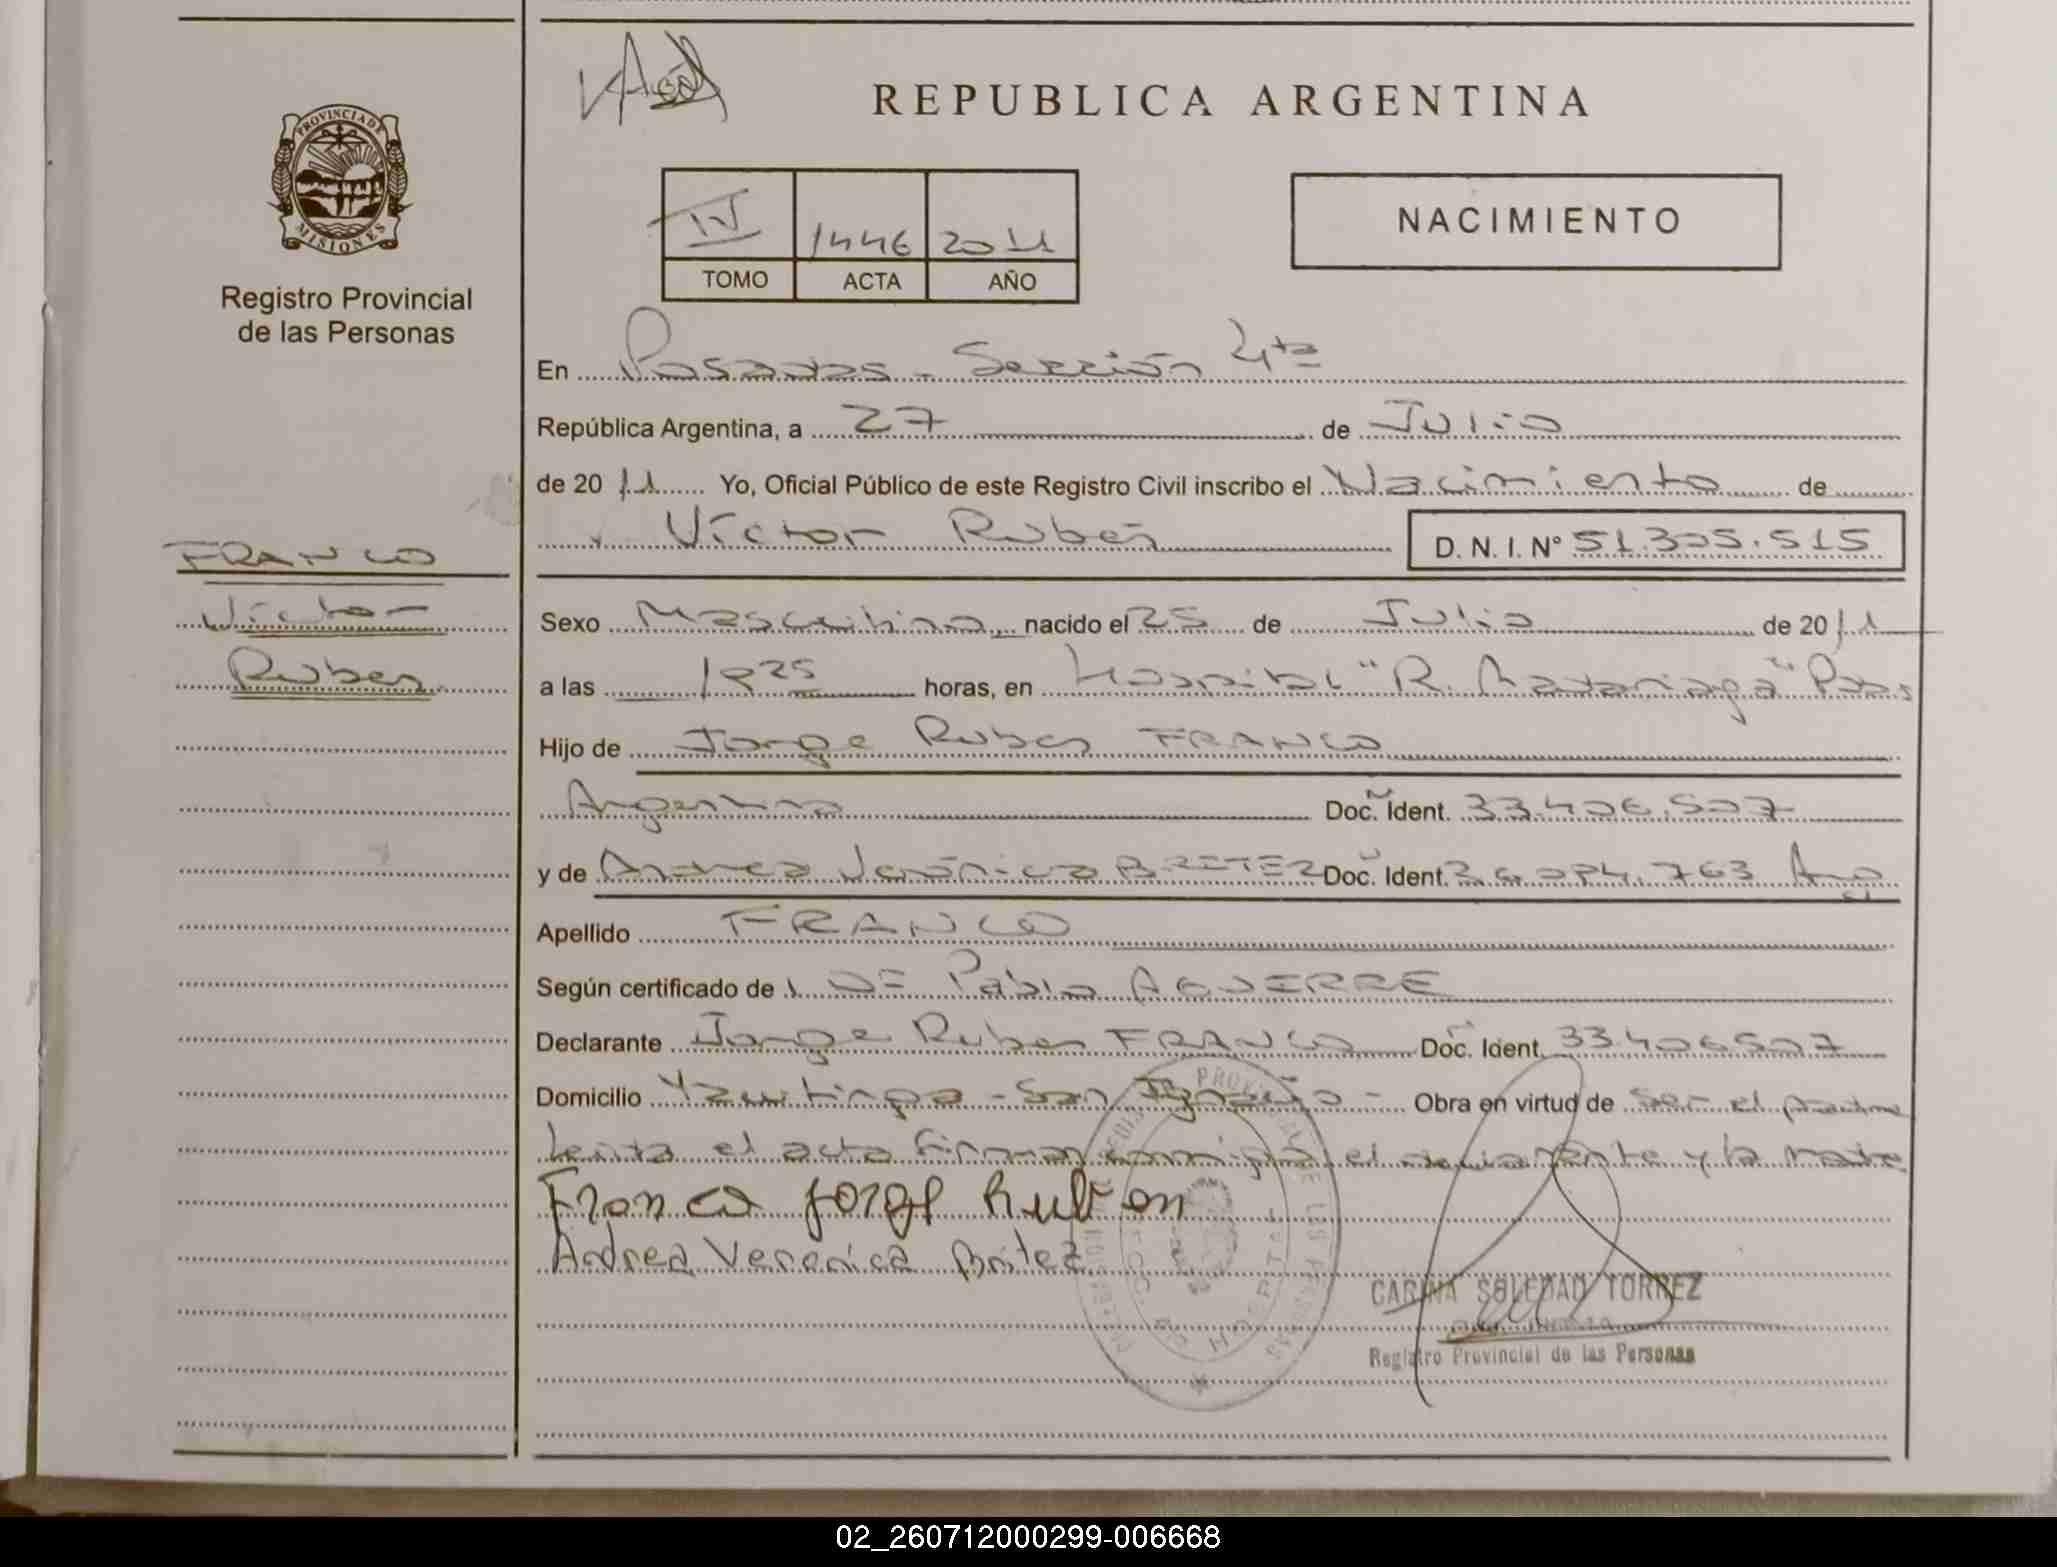 REPUBLICA ARGENTINA
PROVINCIA DE
MISIONES
Registro Provincial
de las Personas
IV 1446 2011
TOMO ACTA AÑO
NACIMIENTO
En Posadas - Sección 4ta
República Argentina, a 27 de Julio
de 2011 Yo, Oficial Público de este Registro Civil inscribo el Nacimiento de
Víctor Rubén D. N. I. Nº 51.305.515
FRANCO
Víctor
Ruben
Sexo Masculino nacido el 25 de Julio de 2011
a las horas, en Hospital "R. Madariaga" Pdas
Hijo de Jorge Ruben FRANCO
Argentino Doc. Ident. 33.406.507
y de Andrea Verónica BRITEZ Doc. Ident. Arg
Apellido FRANCO
Según certificado de DE Pablo AGUIRRE
Declarante Jorge Ruben FRANCO Doc. Ident. 33.406507
Domicilio San Ignacio - Obra en virtud de ser el padre
Leida el acta firman conmigo el declarante y la madre
Franco Jorge Rubén
Andrea Veronica Britez
CARINA SOLEDAD TORREZ
Registro Provincial de las Personas
02_260712000299-006668